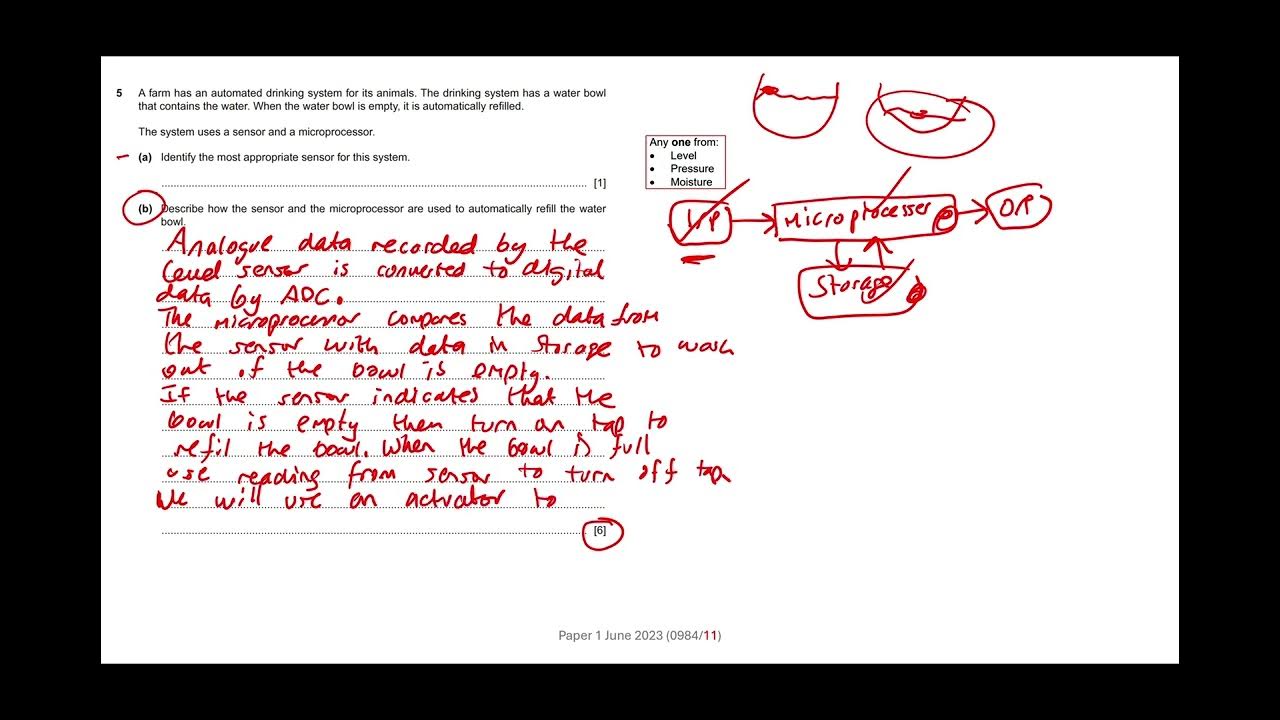 5 A farm has an automated drinking system for its animals. The drinking system has a water bowl
that contains the water. When the water bowl is empty, it is automatically refilled.
The system uses a sensor and a microprocessor.
(a) Identify the most appropriate sensor for this system.
[1]
(b) Describe how the sensor and the microprocessor are used to automatically refill the water
bowl.
Analogue data recorded by the
level sensor is converted to digital
data by ADC.
The microprocessor compares the data from
the sensor with data in storage to work
out if the bowl is empty.
If the sensor indicates that the
bowl is empty then turn on tap to
refil the bowl. When the bowl is full
use reading from sensor to turn off tap
We will use an actuator to
[6]
Any one from:
• Level
• Pressure
• Moisture
I/P
Microprocesser
O/P
Storage
Paper 1 June 2023 (0984/11)